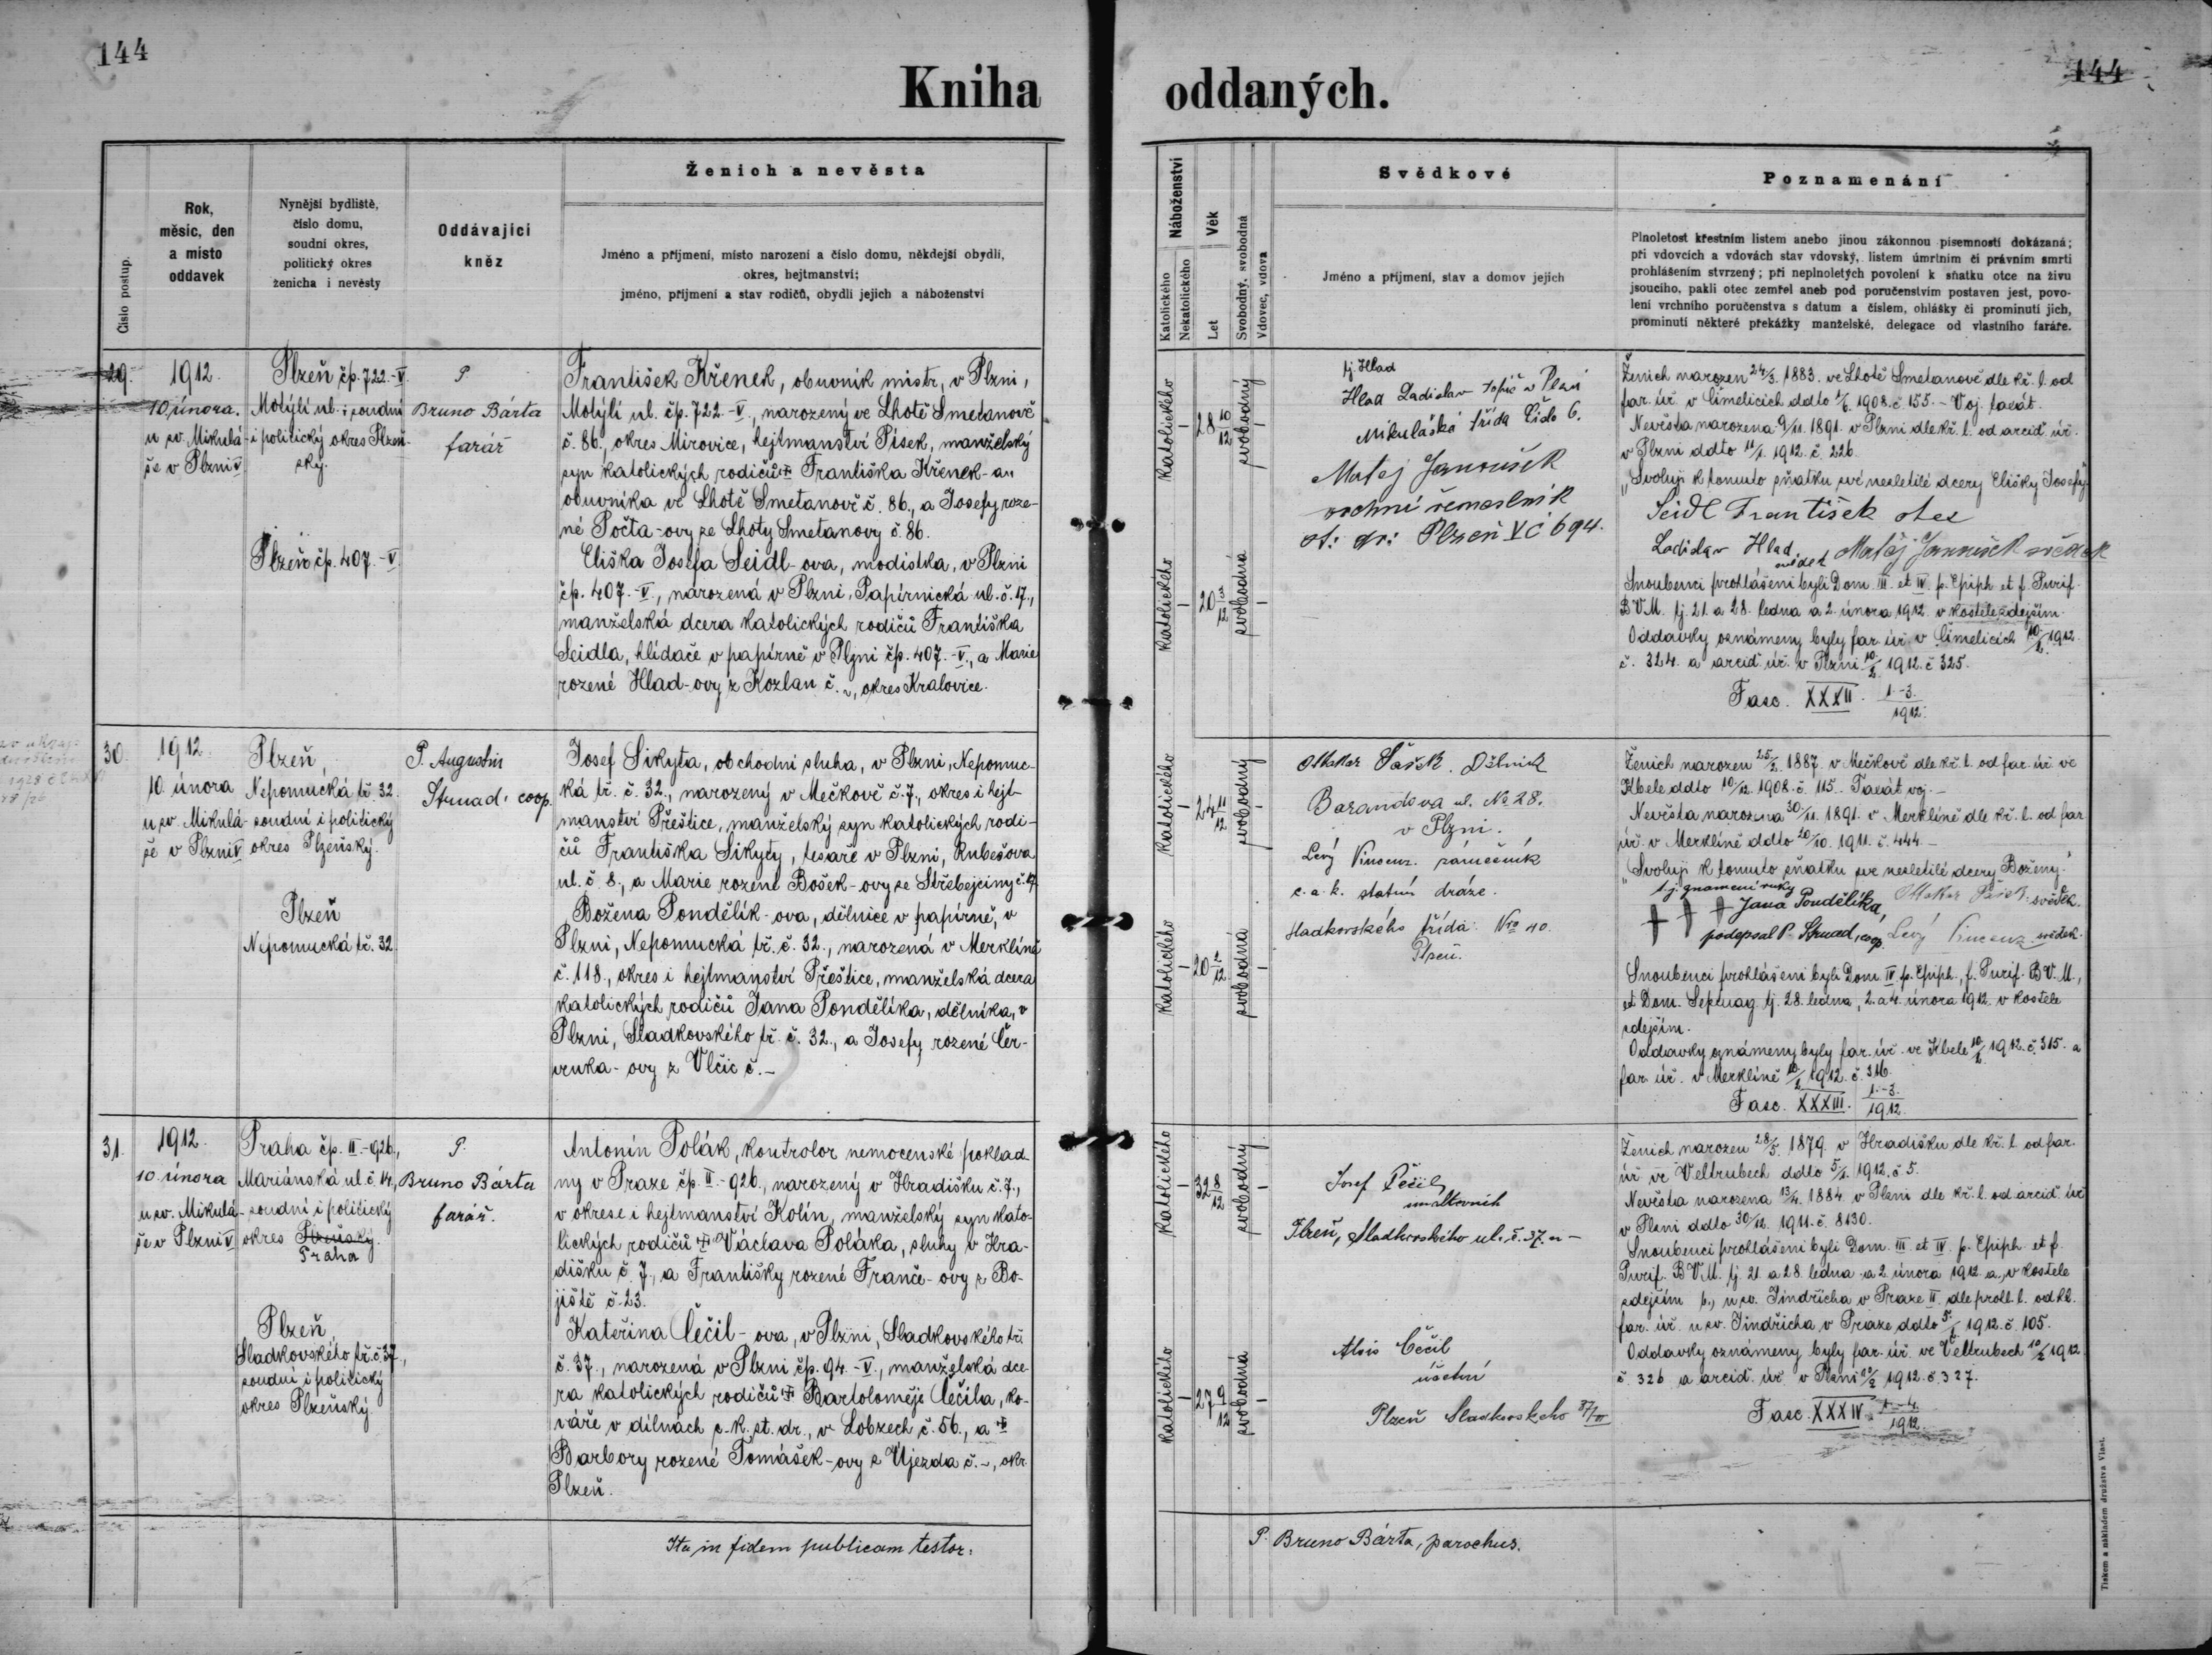 144
Kniha
oddaných.
144
Číslo postup.
Rok,
měsíc, den
a místo
oddavek
Nynější bydliště,
číslo domu,
soudní okres,
politický okres
ženicha i nevěsty
Oddávající
kněz
Ženich a nevěsta
Jméno a příjmení, místo narození a číslo domu, někdejší obydlí,
okres, hejtmanství;
jméno, příjmení a stav rodičů, obydlí jejich a náboženství
29.
1912.
10. února.
u sv. Mikulá-
še v Plzni V
Plzeň čp. 722.-V.
Motýlí ul. i soudní
i politický okres Plzeň-
ský.
Plzeň čp. 407.-V.
P.
Bruno Bárta
farář
František Křenek, obuvník mistr, v Plzni,
Motýlí ul. čp. 722-V., narozený ve Lhotě Smetanově
č. 86., okres Mirovice, hejtmanství Písek, manželský
syn katolických rodičů František Křenek-a
obuvníka ve Lhotě Smetanově č. 86., a Josefy roze-
né Počta-ovy ze Lhoty Smetanovy č. 86.
Eliška Josefa Seidl-ova, modistka, v Plzni
čp. 407.-V., narozená v Plzni, Papírnická ul. č. 17.,
manželská dcera katolických rodičů Františka
Seidla, hlídače v papírně v Plzni čp. 407.-V., a Marie
rozené Hlad-ovy z Kozlan č. –, okres Kralovice.
30.
1912.
10. února
u sv. Mikulá-
še v Plzni V
Plzeň,
Nepomucká tř. 32.
soudní i politický
okres Plzeňský.
Plzeň
Nepomucká tř. 32
P. Augustin
Strnad, coop.
Josef Sikyta, obchodní sluha, v Plzni, Nepomuc-
ká tř. č. 32., narozený v Mečkově č. 7., okres i hejt-
manství Přeštice, manželský syn katolických rodi-
čů Františka Sikyty, tesaře v Plzni, Kubešova
ul. č. 8., a Marie rozené Bošek-ovy ze Střebejčiny č. 17.
Božena Pondělík-ova, dělnice v papírně, v
Plzni, Nepomucká tř. č. 32., narozená v Merklíně
č. 118., okres i hejtmanství Přeštice, manželská dcera
katolických rodičů Jana Pondělíka, dělníka, v
Plzni, Sladkovského tř. č. 32., a Josefy rozené Čer-
venka-ovy z Vlčic č. –
31.
1912.
10. února
u sv. Mikulá-
še v Plzni V
Praha čp. II.-926.,
Mariánská ul. č. 14,
soudní i politický
okres Plzeňský.
Praha
Plzeň
Sladkovského tř. č. 37.,
soudní i politický
okres Plzeňský.
P.
Bruno Bárta
farář.
Antonín Polák, kontrolor nemocenské poklad-
ny v Praze čp. II.-926., narozený v Hradišku č. 7.,
v okrese i hejtmanství Kolín, manželský syn kato-
lických rodičů Václava Poláka, sluhy v Hra-
dišku č. 7., a Františky rozené Franče-ovy z Bo-
jiště č. 23.
Kateřina Čečil-ova, v Plzni, Sladkovského tř.
č. 37., narozená v Plzni čp. 94.-V., manželská dce-
ra katolických rodičů Bartoloměje Čečila, ko-
váře v dílnách c. k. st. dr., v Lobzech č. 56., a
Barbory rozené Tomášek-ovy z Újezda č. –, okr.
Plzeň.
Ita in fidem publicam testor:
Náboženství
Katolického
Nekatolického
Věk
Let
Svobodný, svobodná
Vdovec, vdova
Svědkové
Jméno a příjmení, stav a domov jejich
Poznamenání
Plnoletost křestním listem anebo jinou zákonnou písemností dokázaná;
při vdovcích a vdovách stav vdovský, listem úmrtním či právním smrti
prohlášením stvrzený; při neplnoletých povolení k sňatku otce na živu
jsoucího, pakli otec zemřel aneb pod poručenstvím postaven jest, povo-
lení vrchního poručenstva s datum a číslem, ohlášky či prominutí jich,
prominutí některé překážky manželské, delegace od vlastního faráře.
katolického – 28 10/12 svobodný –
katolického – 20 3/12 svobodná –
tj. Hlad
Hlad Ladislav topič v Plzni
Mikulášká třída Číslo 6.
Matej Janoušek
vrchní řemeslník
st. dr. Plzeň V č 694.
Ženich narozen 24/3. 1883. ve Lhotě Smetanově dle kř. l. od
far. úř. v Čimelicích ddto 1/6. 1908. č. 155. – Voj. taxát.
Nevěsta narozena 9/11. 1891. v Plzni dle kř. l. od arcid. úř.
v Plzni ddto 11/1. 1912. č. 226.
„Svoluji k tomuto sňatku své nezletilé dcery Elišky Josefy“
Seidl František otec
Ladislav Hlad svědek Matěj Janoušek svědek
Snoubenci prohlášeni byli Dom. III. et IV. p. Epiph. et f. Purif.
B. V. M. tj. 21. a 28. ledna a 2. února 1912. v kostele zdejším.
Oddavky oznámeny byly far. úř. v Čimelicích 10/2. 1912.
č. 324. a arcid. úř. v Plzni 10/2. 1912. č. 325.
Fasc. XXXII. 1.-3./1912.
katolického – 24 11/12 svobodný –
katolického – 20 2/12 svobodná –
Ottakar Pašek. Dělník
Barandova ul. No 28.
v Plzni.
Levý Vincenc. zámečník
c. a k. statní dráze.
Sladkovského třída Nro 40.
Plzeň.
Ženich narozen 25/2. 1887. v Mečkově dle kř. l. od far. úř. ve
Kbele ddto 10/12. 1908. č. 115. Taxát voj. –
Nevěsta narozena 30/11. 1891. v Merklíně dle kř. l. od far.
úř. v Merklíně ddto 20/10. 1911. č. 444. –
„Svoluji k tomuto sňatku své nezletilé dcery Boženy.“
tj. znamení ruky
† † † Jana Pondělíka, Ottakar Pašek svědek.
podepsal P. Strnad, coop. Levý Vincenz svědek.
Snoubenci prohlášeni byli Dom. IV. p. Epiph., f. Purif. B. V. M.,
et Dom. Septuag. tj. 28. ledna, 2. a 4. února 1912. v kostele
zdejším.
Oddavky oznámeny byly far. úř. ve Kbele 10/2. 1912. č. 315. a
far. úř. v Merklíně 10/2. 1912. č. 316.
Fasc. XXXIII. 1.-3./1912.
katolického – 32 8/12 svobodný –
katolického – 27 9/12 svobodná –
Josef Čečil
Plzeň, Sladkovského ul. č. 37. –
Alois Čečil
účetní
Plzeň Sladkovského 37/III
Ženich narozen 28/5. 1879. v Hradišku dle kř. l. od far.
úř. ve Veltrubech ddto 5/1. 1912. č. 5.
Nevěsta narozena 13/4. 1884. v Plzni dle kř. l. od arcid. úř.
v Plzni ddto 30/12. 1911. č. 8130.
Snoubenci prohlášeni byli Dom. III. et IV. p. Epiph. et f.
Purif. B. V. M. tj. 21. a 28. ledna a 2. února 1912. a., v kostele
zdejším b., u sv. Jindřicha v Praze II. dle prohl. l. od
far. úř. u sv. Jindřicha v Praze ddto 5/2. 1912. č. 105.
Oddavky oznámeny byly far. úř. ve Veltrubech 10/2 1912
č. 326 a arcid. úř. v Plzni 10/2 1912. č. 327.
Fasc. XXXIV. 1.-4./1912.
P. Bruno Bárta, parochus.
Tiskem a nákladem družstva Vlast.